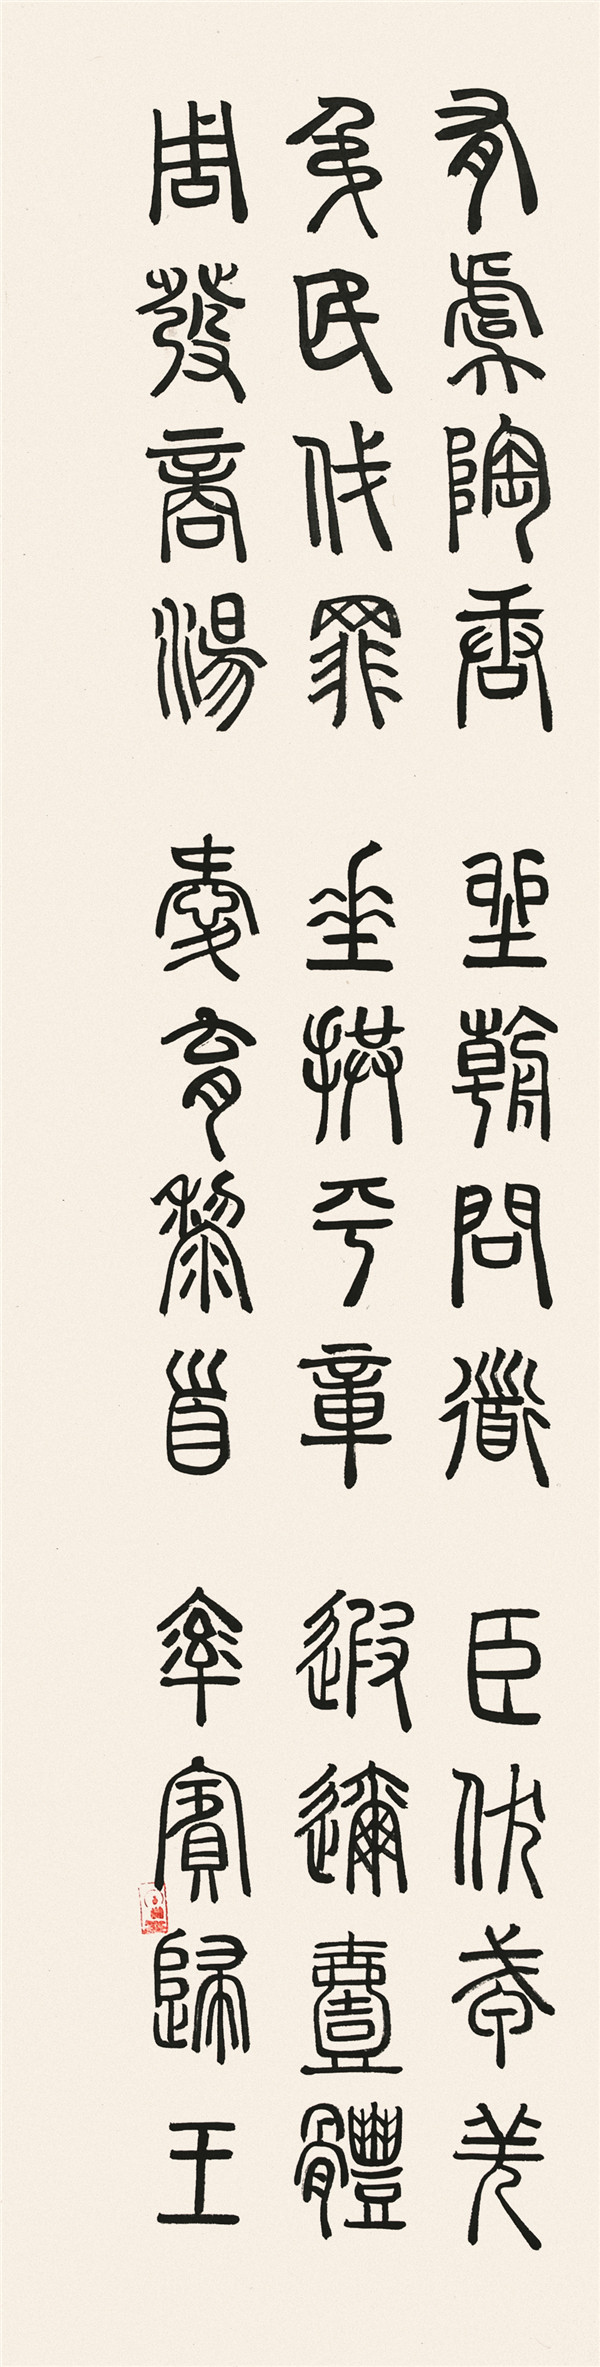 有虞陶唐
弔民伐罪
周發商湯
坐朝問道
垂拱平章
愛育黎首
臣伏戎羌
遐邇壹體
率賓歸王